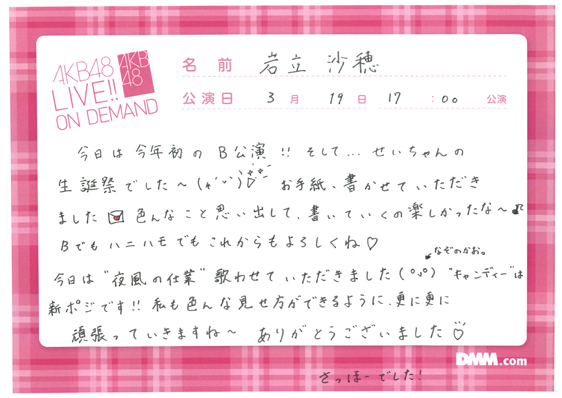 AKB48
LIVE!!
ON DEMAND
AKB
48
名前 岩立 沙穂
公演日 3月 19日 17:00 公演
今日は今年初のB公演!! そして… せいちゃんの
生誕祭でした〜(*´ᵕ`)♡ お手紙、書かせていただき
ました💌 色んなこと思い出して、書いていくの楽しかったな〜♪
Bでもハニハモでもこれからもよろしくね♡
なぞのかお。
今日は"夜風の仕業"歌わせていただきました(°ᴗ°) "キャンディー"は
新ポジです!! 私も色んな見せ方ができるように、更に更に
頑張っていきますね〜 ありがとうございました♡
DMM.com
さっほーでした!